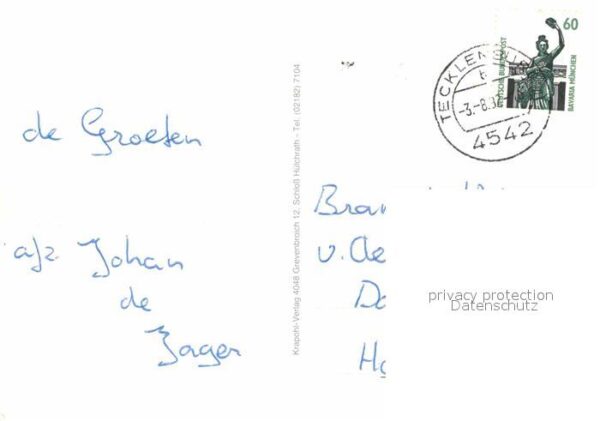 de Groeten
afz Johan
de
Jager
Krapohl-Verlag 4048 Grevenbroich 12, Schloß Hülchrath - Tel. (02182) 7104
60
DEUTSCHE BUNDESPOST
BAVARIA MÜNCHEN
TECKLEN
b
-3.-8.9
4542
Bran
v. de
Da
Ha
privacy protection
Datenschutz